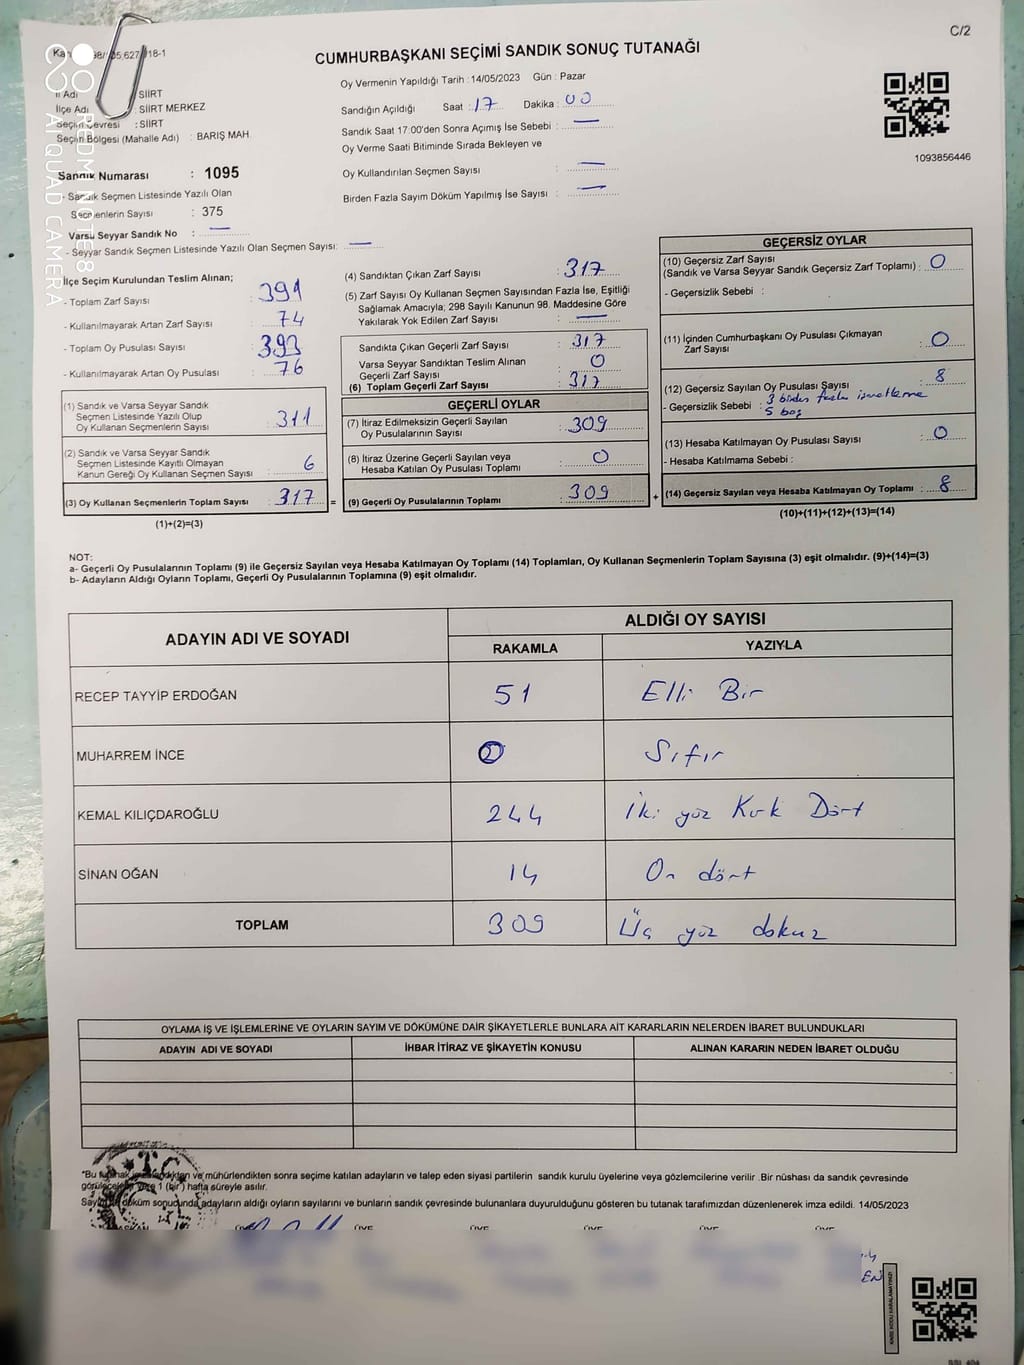 C/2
CUMHURBAŞKANI SEÇİMİ SANDIK SONUÇ TUTANAĞI
Oy Vermenin Yapıldığı Tarih : 14/05/2023 Gün : Pazar
İl Adı : SİİRT
İlçe Adı : SİİRT MERKEZ
Seçim Çevresi : SİİRT
Seçim Bölgesi (Mahalle Adı) : BARIŞ MAH.
Sandık Numarası : 1095
- Sandık Seçmen Listesinde Yazılı Olan
Seçmenlerin Sayısı : 375
Varsa Seyyar Sandık No : —
- Seyyar Sandık Seçmen Listesinde Yazılı Olan Seçmen Sayısı: —
Sandığın Açıldığı Saat : 17 Dakika : 00
Sandık Saat 17:00'den Sonra Açımış İse Sebebi : —
Oy Verme Saati Bitiminde Sırada Bekleyen ve
Oy Kullandırılan Seçmen Sayısı : —
Birden Fazla Sayım Döküm Yapılmış İse Sayısı : —
1093856446
REDMI NOTE 8
AI QUAD CAMERA
İlçe Seçim Kurulundan Teslim Alınan;
- Toplam Zarf Sayısı : 391
- Kullanılmayarak Artan Zarf Sayısı : 74
- Toplam Oy Pusulası Sayısı : 393
- Kullanılmayarak Artan Oy Pusulası : 76
(1) Sandık ve Varsa Seyyar Sandık
Seçmen Listesinde Yazılı Olup
Oy Kullanan Seçmenlerin Sayısı : 311
(2) Sandık ve Varsa Seyyar Sandık
Seçmen Listesinde Kayıtlı Olmayan
Kanun Gereği Oy Kullanan Seçmen Sayısı : 6
(3) Oy Kullanan Seçmenlerin Toplam Sayısı : 317 =
(1)+(2)=(3)
(4) Sandıktan Çıkan Zarf Sayısı : 317
(5) Zarf Sayısı Oy Kullanan Seçmen Sayısından Fazla İse, Eşitliği
Sağlamak Amacıyla; 298 Sayılı Kanunun 98. Maddesine Göre
Yakılarak Yok Edilen Zarf Sayısı : —
Sandıkta Çıkan Geçerli Zarf Sayısı : 317
Varsa Seyyar Sandıktan Teslim Alınan
Geçerli Zarf Sayısı : 0
(6) Toplam Geçerli Zarf Sayısı : 317
GEÇERLİ OYLAR
(7) İtiraz Edilmeksizin Geçerli Sayılan
Oy Pusulalarının Sayısı : 309
(8) İtiraz Üzerine Geçerli Sayılan veya
Hesaba Katılan Oy Pusulası Toplamı : 0
(9) Geçerli Oy Pusulalarının Toplamı : 309 +
GEÇERSİZ OYLAR
(10) Geçersiz Zarf Sayısı
(Sandık ve Varsa Seyyar Sandık Geçersiz Zarf Toplamı) : 0
- Geçersizlik Sebebi :
(11) İçinden Cumhurbaşkanı Oy Pusulası Çıkmayan
Zarf Sayısı : 0
(12) Geçersiz Sayılan Oy Pusulası Sayısı : 8
- Geçersizlik Sebebi : 3 birden fazla işaretleme
5 boş
(13) Hesaba Katılmayan Oy Pusulası Sayısı : 0
- Hesaba Katılmama Sebebi :
(14) Geçersiz Sayılan veya Hesaba Katılmayan Oy Toplamı : 8
(10)+(11)+(12)+(13)=(14)
NOT:
a- Geçerli Oy Pusulalarının Toplamı (9) ile Geçersiz Sayılan veya Hesaba Katılmayan Oy Toplamı (14) Toplamları, Oy Kullanan Seçmenlerin Toplam Sayısına (3) eşit olmalıdır. (9)+(14)=(3)
b- Adayların Aldığı Oyların Toplamı, Geçerli Oy Pusulalarının Toplamına (9) eşit olmalıdır.
ADAYIN ADI VE SOYADI ALDIĞI OY SAYISI
RAKAMLA YAZIYLA
RECEP TAYYİP ERDOĞAN 51 Elli Bir
MUHARREM İNCE 0 Sıfır
KEMAL KILIÇDAROĞLU 244 İki yüz Kırk Dört
SİNAN OĞAN 14 On dört
TOPLAM 309 Üç yüz dokuz
OYLAMA İŞ VE İŞLEMLERİNE VE OYLARIN SAYIM VE DÖKÜMÜNE DAİR ŞİKAYETLERLE BUNLARA AİT KARARLARIN NELERDEN İBARET BULUNDUKLARI
ADAYIN ADI VE SOYADI İHBAR İTİRAZ VE ŞİKAYETİN KONUSU ALINAN KARARIN NEDEN İBARET OLDUĞU
*Bu ve mühürlendikten sonra seçime katılan adayların ve talep eden siyasi partilerin sandık kurulu üyelerine veya gözlemcilerine verilir .Bir nüshası da sandık çevresinde
1 (bir) hafta süreyle asılır.
döküm sonucunda adayların aldığı oyların sayılarını ve bunların sandık çevresinde bulunanlara duyurulduğunu gösteren bu tutanak tarafımızdan düzenlenerek imza edildi. 14/05/2023
T.C.
ÜYE ÜYE ÜYE ÜYE ÜYE